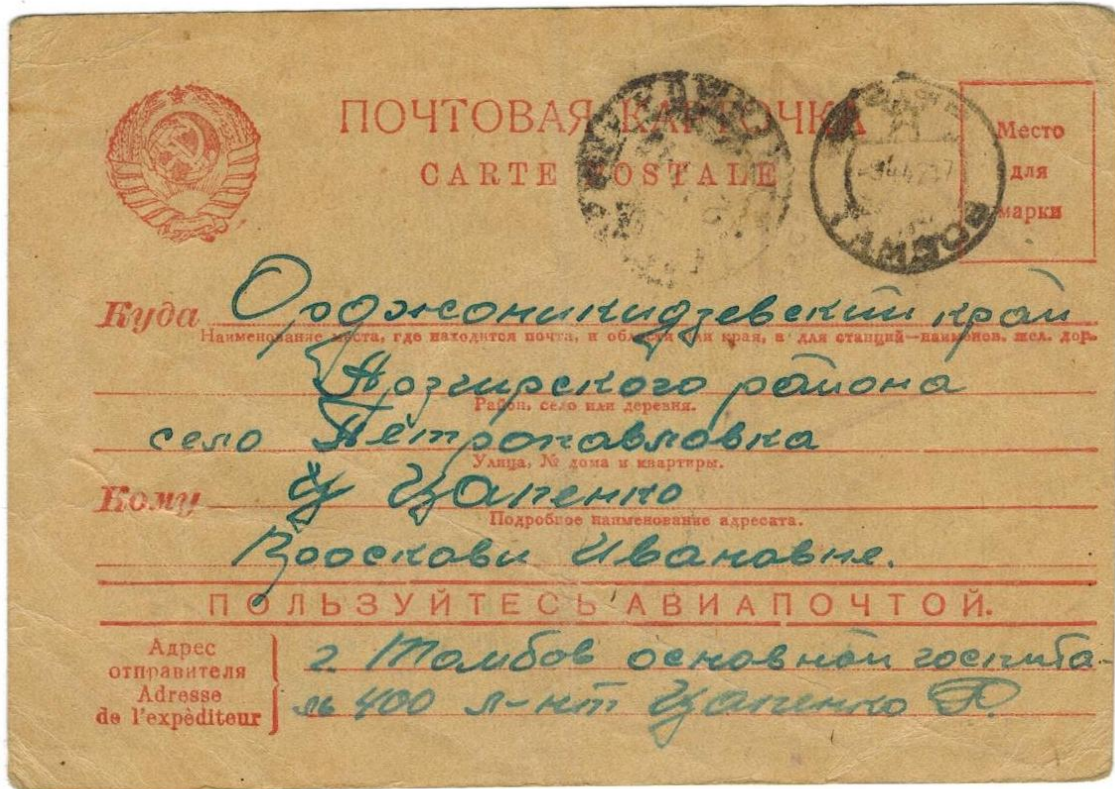 ПОЧТОВАЯ КАРТОЧКА
CARTE POSTALE
Место
для
марки
Куда Орджоникидзевский край
Наименование места, где находится почта, и области или края, а для станций—наименов. жел. дор.
Арзгирского района
Район, село или деревня.
село Петропавловка
Улица, № дома и квартиры.
Кому Цапенко
Подробное наименование адресата.
Ивановне.
ПОЛЬЗУЙТЕСЬ АВИАПОЧТОЙ.
Адрес
отправителя
Adresse
de l'expéditeur
г Тамбов основной госпита
ль 400 л-нт Цапенко